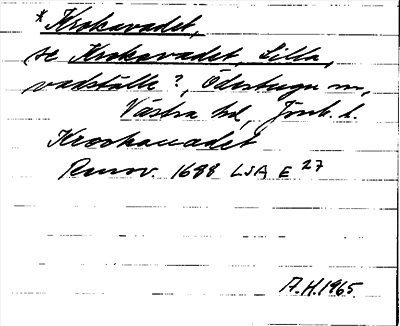 *Krokavadet,
se Krokavadet, Lilla,
vadställe?, Ödestugu sn,
Västra hd, Jönk. l.
Krookauadet
Rmov. 1688 LSA E 27
A.H. 1965.